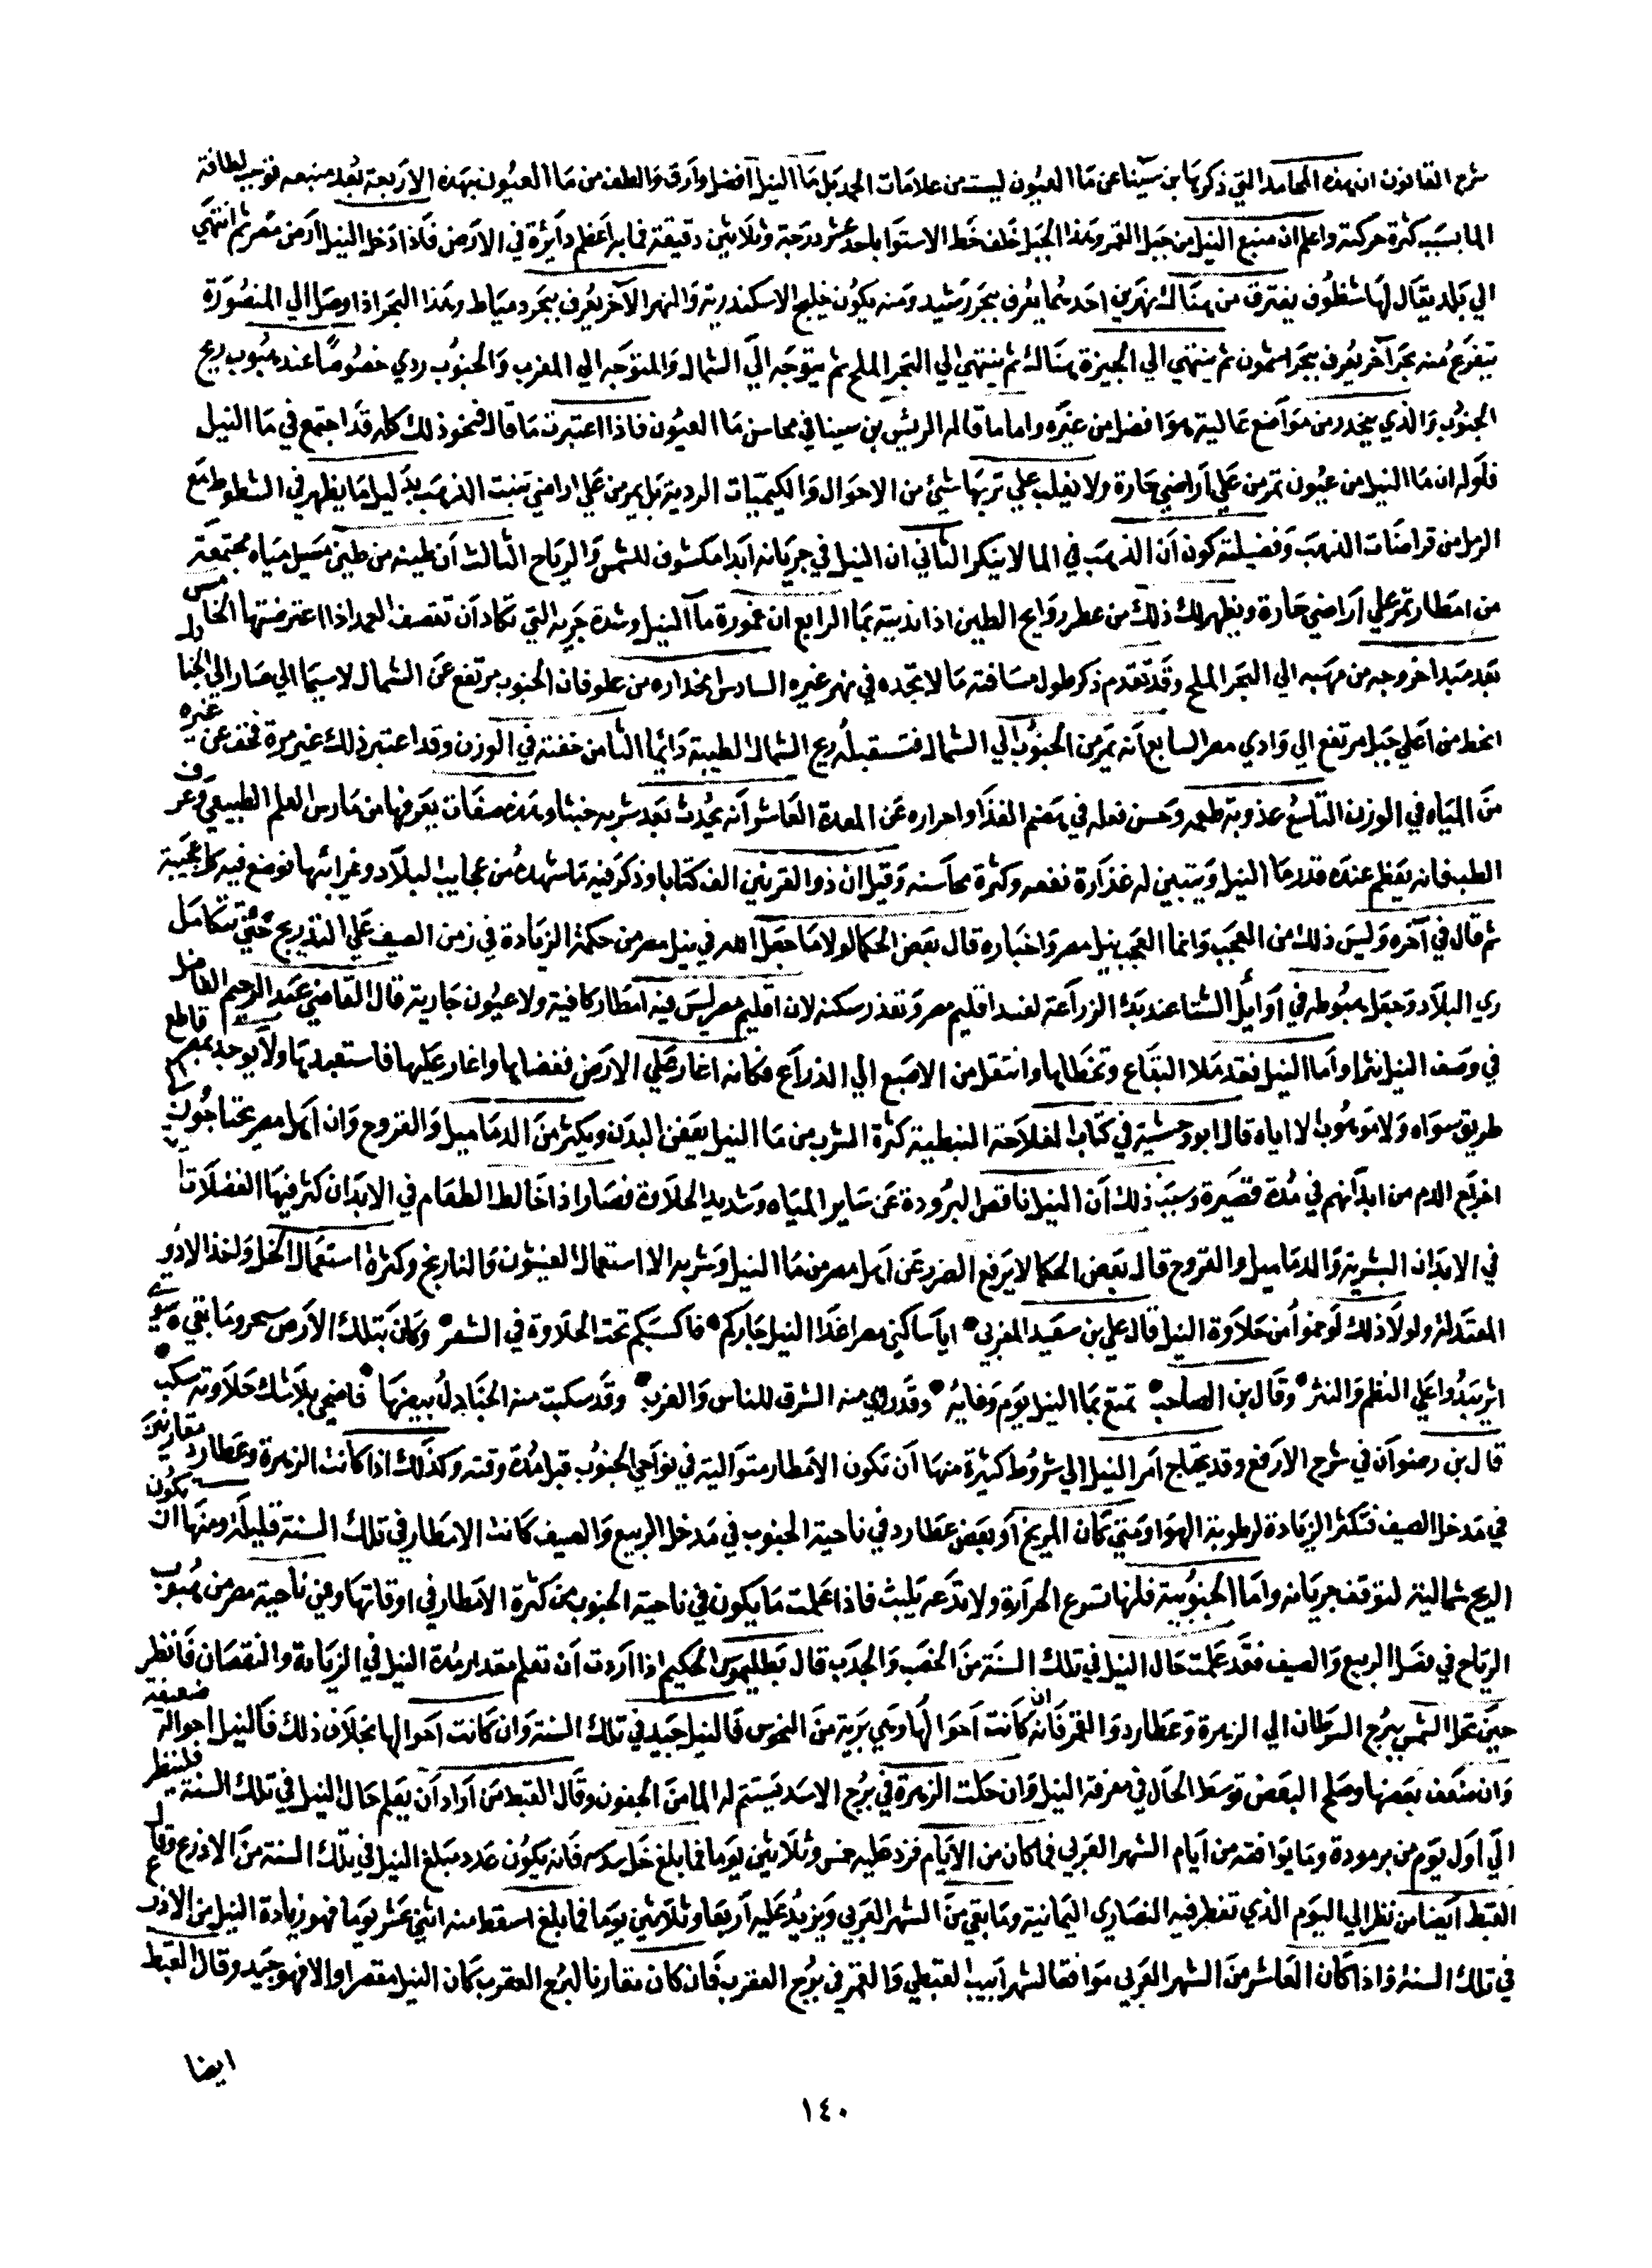 شرح القانون ان هذه المحامد التي ذكرها بن سينا عن ما العيون ليست من علامات الحمد بل ما النيل افضل وارق والطف من ما العيون بهذه الاربعة بعد منبعه فتوجب لطافة
الما بسبب كثرة حركته واعلم ان منبع النيل من جبل القمر وهذا الجبل خلف خط الاستوا باحد عشر درجة وثلاثين دقيقة فما به اعظم دايرة في الارض فاذا دخل النيل ارض مصر ثم انتهي
الي بلد يقال لها شطنوف يفترق من هناك نهرين احدهما يعرف ببحر رشيد ومنه يكون خليج الاسكندرية والنهر الآخر يعرف ببحر دمياط وهذا البحر اذا وصل الي المنصورة
يتفرع منه بحر آخر يعرف ببحر اشمون ثم ينتهي الي الجيزة هناك ثم ينتهي الي البحر الملح ثم يتوجه الي الشمال والمتوجه الي المغرب والجنوب ردي خصوصا عند هبوب ريح
الجنوب والذي ينحدر من مواضع عالية هو افضل من غيره واما ما قاله الريس بن سينا في محاسن ما العيون فاذا اعتبرت ما قاله فنحو ذلك كله قد اجتمع في ما النيل
فاوله ان ما النيل من عيون تمر من علي اراضي حارة ولا يغلب علي تربها شئ من الاحوال والكيميات الردية بل يمر من علي اراضي تنبت الذهب بدليل ما يظهر في الشطوط مع
الرمل من قراضات الذهب وفضيلة كون ان الذهب في الما لا ينكر الثاني ان النيل في جريانه ابدا مكشوف للشمس والرياح الثالث ان طينه من طين مسيل مياه مجتمعة
من امطار تمر علي اراضي حارة ويظهر لك ذلك من عطر روايح الطين اذا نديته بما الرابع ان غمورة ما النيل وشدة جريه التي تكاد ان تقصف العمد اذا اعترضتها الخامس
بعد مبدا خروجه من مهبه الي البحر الملح وقد تقدم ذكر طول مسافته ما لا تجده في نهر غيره السادس انحداره من علو فان الجنوب مرتفع عن الشمال لا سيما الي صار الي الجنادل
انحط من اعلي جبل مرتفع الي وادي مصر السابع انه يمر من الجنوب الي الشمال فتستقبله ريح الشمال الطيبة دايما الثامن خفته في الوزن وقد اعتبر ذلك غير مرة فخف عن غيره
من المياه في الوزن التاسع عذوبة طعمه وحسن فعله في هضم الغذا واحداره عن المعدة العاشر انه يحدث بعد شربه جشا وهذه صفات يعرفها من مارس العلم الطبيعي وعرف
الطب فانه يعظم عنده قدر ما النيل ويتبين له غزارة نفعه وكثرة محاسنه وقيل ان ذو القرنين الف كتابا وذكر فيه ما شهده من عجايب البلاد وغرائبها فوضع فيه كل عجيبة
ثم قال في آخره وليس ذلك من العجب وانما العجب نيل مصر واخباره قال بعض الحكما لولا ما جعل الله في نيل مصر من حكمة الزيادة في زمن الصيف علي التدريج حتي يتكامل
ري البلاد وجعل هبوطه في اوايل الشتا عند بدء الزراعة لفسد اقليم مصر وتعذر سكنه لان اقليم مصر ليس فيه امطار كافية ولا عيون جارية قال القاضي عبد الرحيم الفاضل
في وصف النيل نثرا واما النيل فقد ملا البقاع وتخطاها وانتقل من الاصبع الي الذراع فكانه اغار علي الارض فغصبها واغار عليها فاستعبدها ولا يوجد بمصر قاطع
طريق سواه ولا مرهوب الا اياه قال ابو وحشية في كتاب الفلاحة النبطية كثرة الشرب من ما النيل يعفن البدن ويكثر من الدماميل والقروح وان اهل مصر يحتاجون الي
اخراج الدم من ابدانهم في مدة قصيرة وسبب ذلك ان النيل ناقص البرودة عن ساير المياه وشديد الحلاوة فصار اذا خالط الطعام في الابدان كثر فيها الفضلات
في الابدان البشرية والدماميل والقروح قال بعض الحكما لا يرفع الضرر عن اهل مصر من ما النيل وشربه الا استعمال الغيثون والنارنج وكثرة استعمال الخل واخذ الادوية
المعتدلة ولولا ذلك لوخموا من حلاوة النيل قال علي بن سعيد المغربي ايا ساكني مصر اغدا النيل جاركم فاكسبكم تحت الحلاوة في الشعر وكان بتلك الارض سحر وما بقي سوي
اثر يبدوا علي النظم والنثر وقال بن الصاحب تمتع بما النيل يوم وفايه وقد روي منه الشرق للناس والغرب وقد سكبت منه الجنادل بيضها فاضحي بلا شك حلاوته سكب
قال بن رضوان في شرح الارفع وقد يحتاج امر النيل الي شروط كثيرة منها ان تكون الامطار متوالية في نواحي الجنوب قبل مدة وقته وكذلك اذا كانت الزهرة وعطارد مقارنين
في مدخل الصيف فتكثر الزيادة لرطوبة الهوا ومتي كان المريخ او بعض عطارد في ناحية الجنوب في مدخل الربيع والصيف كانت الامطار في تلك السنة قليلة ومنها ان يكون
الريح شمالية لتوقف جريانه واما الجنوبية فانها تسرع الحرارة ولا تدعه يلبث فاذا علمت ما يكون في ناحية الجنوب من كثرة الامطار في اوقاتها وفي ناحية مصر من هبوب
الرياح في فصل الربيع والصيف فقد علمت حال النيل في تلك السنة من الخصب والجدب قال بطليموس الحكيم اذا اردت ان تعلم مقدار مدة النيل في الزيادة والنقصان فانظر
حين تحل الشمس ببرج السرطان الي الزهرة وعطارد والقمر فانه ان كانت احوالها وهي برية من النحوس فالنيل جيد في تلك السنة وان كانت احوالها بخلاف ذلك فالنيل احواله ضعيفة
وان ضعف بعضها وصلح البعض توسط الحال في معرفة النيل وان حلت الزهرة في برج الاسد فيستتم له الما من الجفون وقال القبط من اراد ان يعلم حال النيل في تلك السنة فلينظر
الي اول يوم من برمودة وما يوافقه من ايام الشهر العربي فما كان من الايام فزد عليه خمس وثلاثين يوما فما بلغ خل سدسه فانه يكون عدد مبلغ النيل في تلك السنة من الاذرع وقال
القبط ايضا من نظر الي اليوم الذي تفطر فيه النصاري اليمانية وما بقي من الشهر العربي ويزيد عليه اربعا وثلاثين يوما فما بلغ اسقط منه اثني عشر يوما فهو زيادة النيل من الاذرع
في تلك السنة واذا كان العاشر من الشهر العربي موافقا لشهر ابيب القبطي والقمر في برج العقرب فان كان مقارنا لبرج العقرب كان النيل مقصرا والا فهو جيد وقال القبط
ايضا
١٤٠